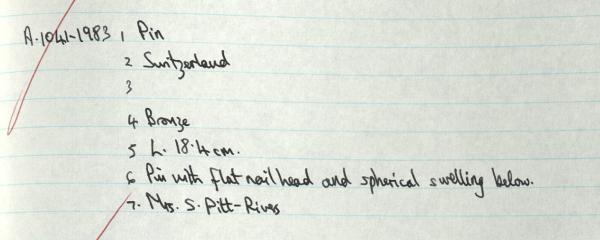 A.1041-1983 1 Pin
2 Switzerland
3
4 Bronze
5 L. 18.4cm.
6 Pin with flat nail head and spherical swelling below.
7. Mrs. S. Pitt-Rivers